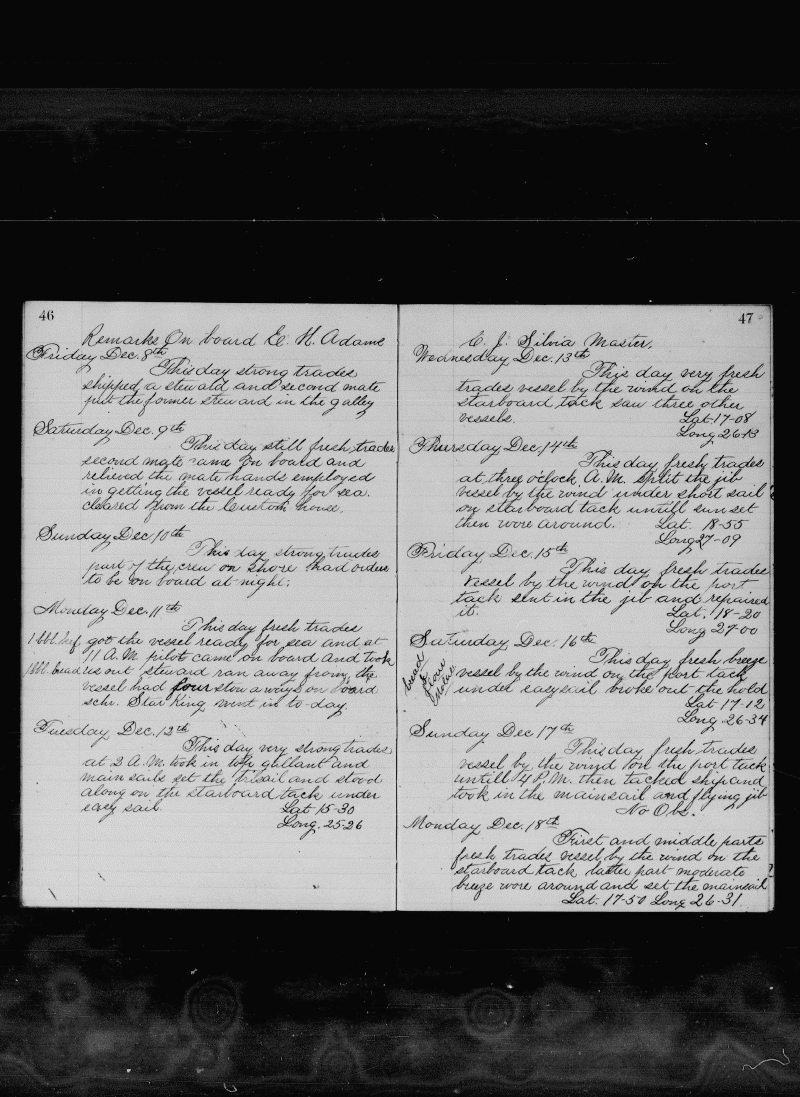 46
Remarks On board E. H. Adams
Friday Dec. 8th
This day strong trades
shipped a steward and second mate
put the former steward in the galley
Saturday Dec. 9th
This day still fresh trades
second mate came on board and
relieved the mate hands employed
in getting the vessel ready for sea.
cleared from the Custom house.
Sunday Dec. 10th
This day strong trades
part of the crew on shore had orders
to be on board at night.
Monday Dec. 11th
This day fresh trades
1 bbl. beef got the vessel ready for sea and at
11 A.M. pilot came on board and took
1 bbl. bread us out steward ran away from the
vessel had four stowaways on board
schr. Star King went in to-day.
Tuesday Dec. 12th
This day very strong trades
at 2 A.M. took in top gallant and
main sails set the trisail and stood
along on the starboard tack under
easy sail. Lat 15-30
Long. 25-26
47
E. J. Silvia Master.
Wednesday Dec. 13th
This day very fresh
trades vessel by the wind on the
starboard tack saw three other
vessels. Lat. 17-08
Long 26-13
Thursday Dec. 14th
This day fresh trades
at three o'clock A.M. split the jib
vessel by the wind under short sail
on starboard tack untill sun set
then wore around. Lat. 18-55
Long 27-09
Friday Dec. 15th
This day fresh trades
vessel by the wind on the port
tack sent in the jib and repaired
it. Lat. 18-20
Long 27-00
Saturday Dec. 16th
This day fresh breeze
bread & flour
vessel by the wind on the port tack
under easy sail broke out the hold
Lat 17-12
Long. 26-34
Sunday Dec 17th
This day fresh trades
vessel by the wind on the port tack
untill 4 P.M. then tacked ship and
took in the mainsail and flying jib
No Obs.
Monday Dec. 18th
First and middle parts
fresh trades vessel by the wind on the
starboard tack latter part moderate
breeze wore around and set the mainsail
Lat. 17-50 Long 26-31